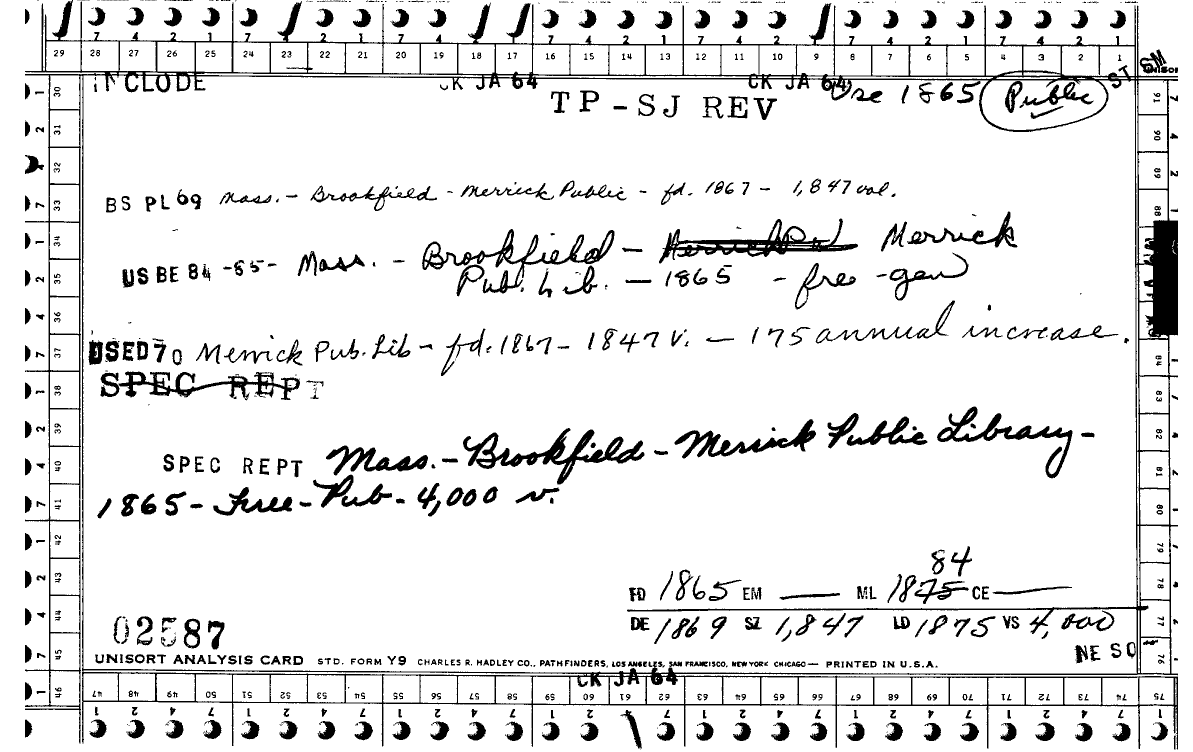 7 4 2 1 7 4 2 1 7 4 2 1 7 4 2 1 7 4 2 1 7 4 2 1 7 4 2 1
29 28 27 26 25 24 23 22 21 20 19 18 17 16 15 14 13 12 11 10 9 8 7 6 5 4 3 2 1
INCLODE CK JA 64 CK JA 64 Use 1865 Public ST SM
TP-SJ REV
BS PL69 Mass. - Brookfield - Merrick Public - fd. 1867 - 1,847 vol.
US BE 84 -85- Mass. - Brookfield - Merrick
Pub. Lib. - 1865 - free - gen
USED70 Merrick Pub. Lib - fd. 1867 - 1847 v. - 175 annual increase.
SPEC REPT
SPEC REPT Mass. - Brookfield - Merrick Public Library -
1865 - Free - Pub - 4,000 v.
84
FD 1865 EM — ML 1875 CE —
DE 1869 SZ 1,847 LD 1875 VS 4,000
02587
NE SO
UNISORT ANALYSIS CARD STD. FORM Y9 CHARLES R. HADLEY CO., PATHFINDERS, LOS ANGELES, SAN FRANCISCO, NEW YORK CHICAGO — PRINTED IN U.S.A.
CK JA 64
46 47 48 49 50 51 52 53 54 55 56 57 58 59 60 61 62 63 64 65 66 67 68 69 70 71 72 73 74 75
1 2 4 7 1 2 4 7 1 2 4 7 1 2 4 7 1 2 4 7 1 2 4 7 1 2 4 7 1